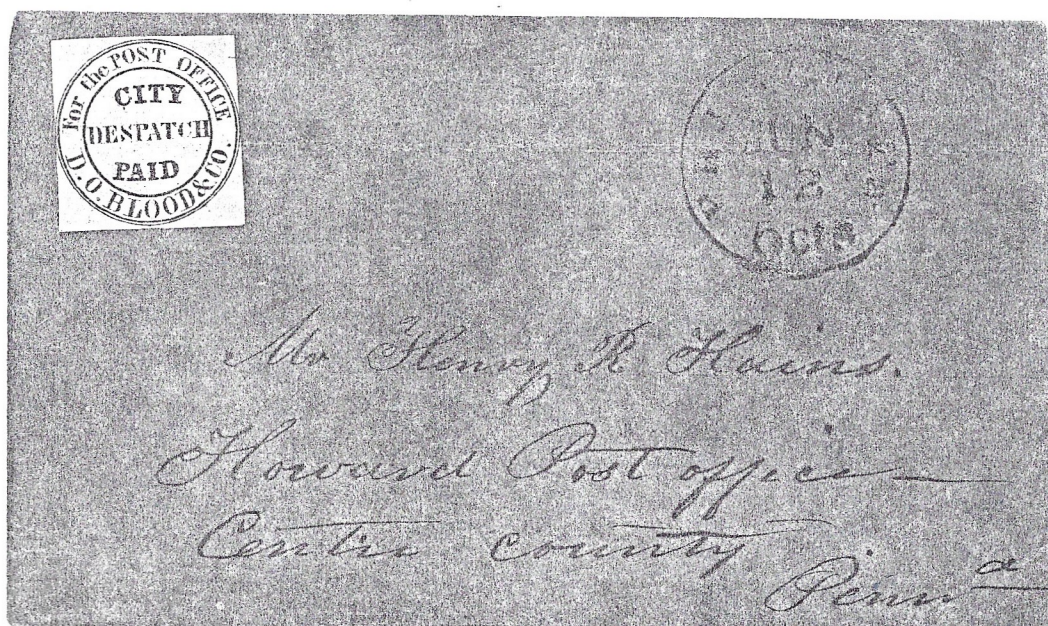 For the POST OFFICE
CITY
DESPATCH
PAID
D.O. BLOOD & CO.
JUN
12
10 cts
Mr Henry R Hains.
Howard Post office
Centre county
Penna